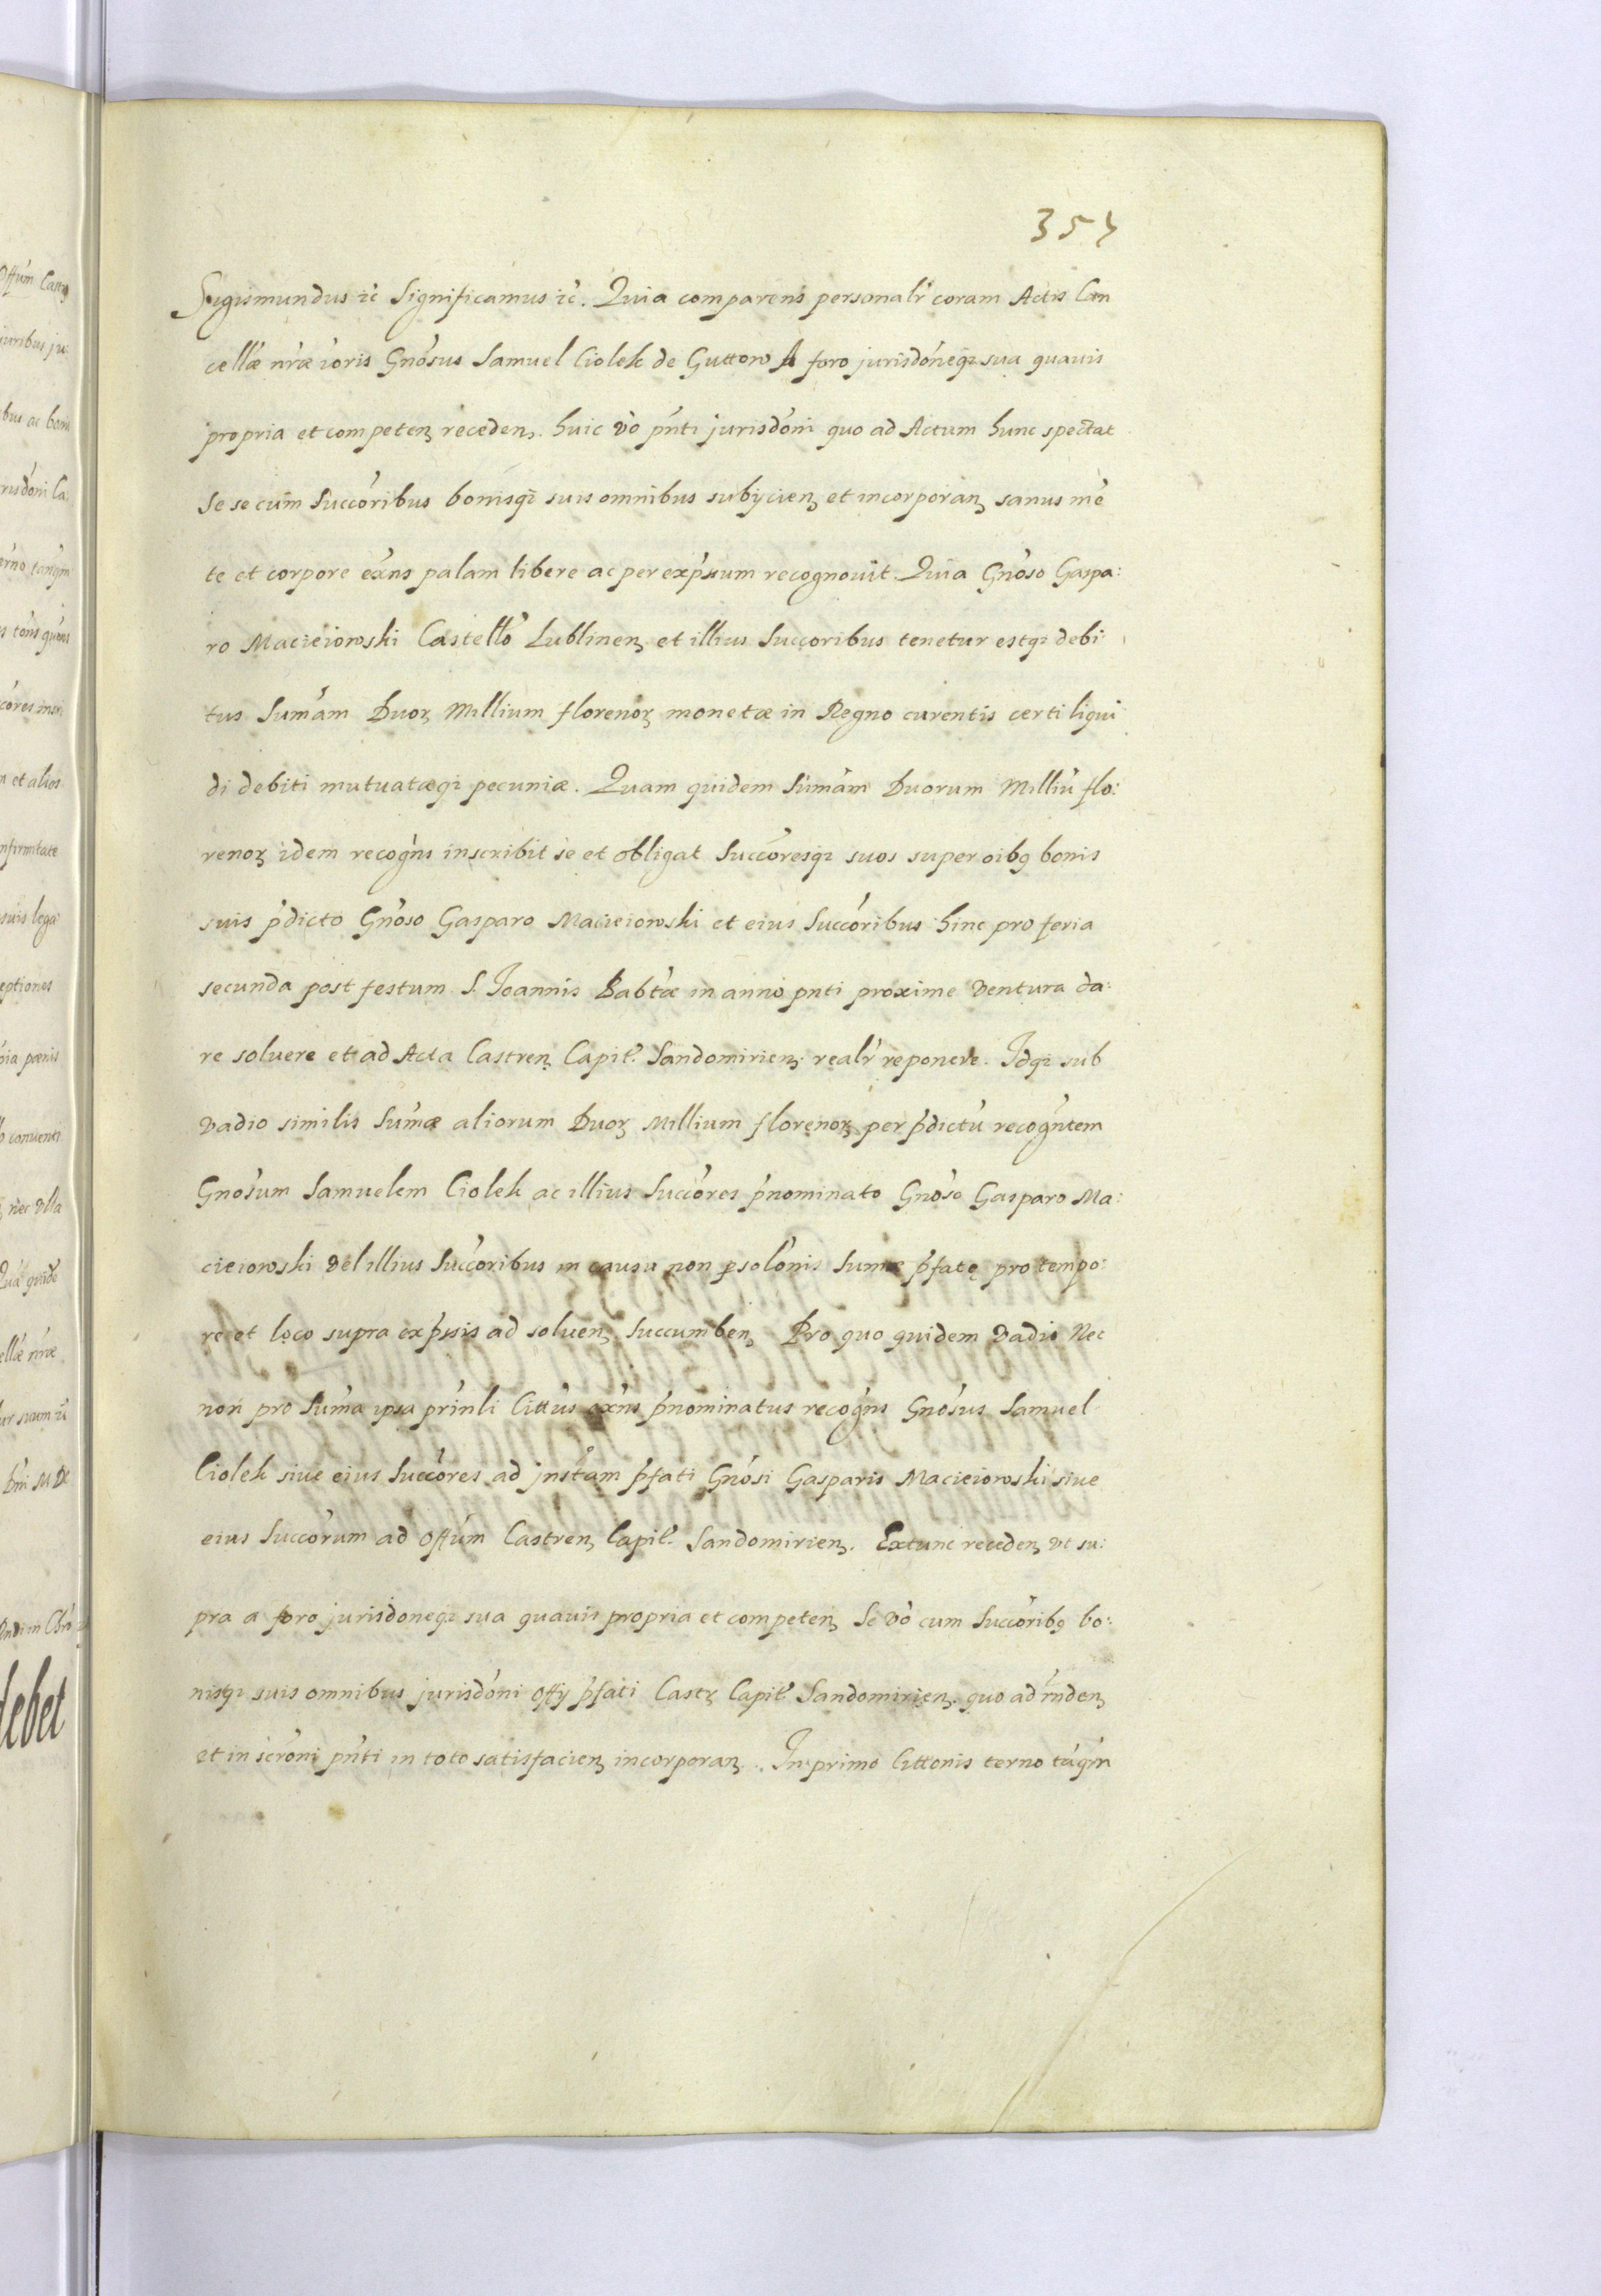 354
Sigismundus ꝛc̃ Significamus ꝛc̃. Quia comparens personalr̃ coram Actis Can
cellæ nr̃æ ĩoris Gñosus Samuel Ciolek de Guttow A foro jurisdõneqꝫ sua quauis
propria et competenꝫ recedenꝫ. huic võ pñti jurisdõni quo ad Actum hunc spectat
Se se cum Succõribus bonisqꝫ suis omnibus subijcienꝫ et incorporanꝫ sanus mẽ
te et corpore exñs palam libere ac per exp̃ssum recognouit. Quia Gñoso Gaspa:
ro Macieiowski Castellõ Lublinenꝫ et illius Succoribus tenetur estqꝫ debi:
tus Sum̃am Duoꝝ Millium florenoꝝ monetæ in Regno curentis certi liqui
di debiti mutuatæqꝫ pecuniæ. Quam quidem Sum̃am Duorum Milliũ flo:
renoꝝ idem recog̃ns inscribit se et obligat Succõresqꝫ suos super oĩbꝰ bonis
suis p̃dicto Gñoso Gasparo Macieiowski et eius Succõribus hinc pro feria
secunda post festum S. Joannis Babtæ in anno pñti proxime ventura da:
re soluere et ad Acta Castrenꝫ Capit̃. Sandomirienꝫ realr̃ reponere. Idqꝫ sub
vadio similis Sum̃æ aliorum Duoꝝ Millium florenoꝝ per p̃dictũ recog̃ntem
Gñosum Samuelem Ciolek ac illius Succõres p̃nominato Gñoso Gasparo Ma:
cieiowski vel illius Succõribus in causu non ꝑsolõnis Sum̃æ p̃fatę pro tempo:
re et loco supra exp̃ssis ad soluenꝫ Succumbenꝫ Pro quo quidem vadio Nec
non pro Sum̃a ipsa prĩnli Cittũs exñs p̃nominatus recog̃ns Gñosus Samuel
Ciolek siue eius Succõres ad jnstam̃ p̃fati Gñosi Gasparis Macieiowski siue
eius Succõrum ad Offũm Castrenꝫ Capit̃. Sandomirienꝫ. Extunc recedenꝫ vt su:
pra a foro jurisdoneqꝫ sua quauis propria et competenꝫ Se võ cum Succõribꝰ bo:
nisqꝫ suis omnibus jurisdõni Offij p̃fati Castꝝ Capit̃ Sandomirienꝫ. quo ad rñdenꝫ
et inscrõni pñti in toto satisfacienꝫ incorporanꝫ. In primo Cittonis terno tãq̃m